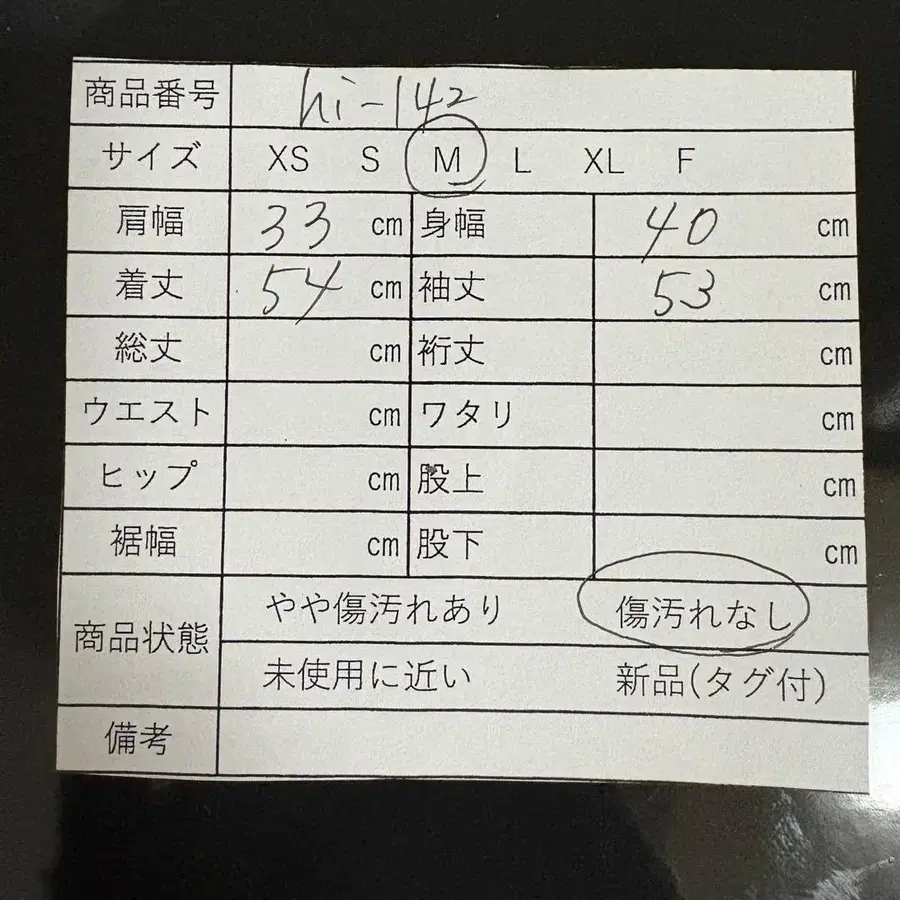 商品番号 hi-142
サイズ XS S M L XL F
肩幅 33 cm 身幅 40 cm
着丈 54 cm 袖丈 53 cm
総丈 cm 裄丈 cm
ウエスト cm ワタリ cm
ヒップ cm 股上 cm
裾幅 cm 股下 cm
商品状態 やや傷汚れあり 傷汚れなし
未使用に近い 新品(タグ付)
備考